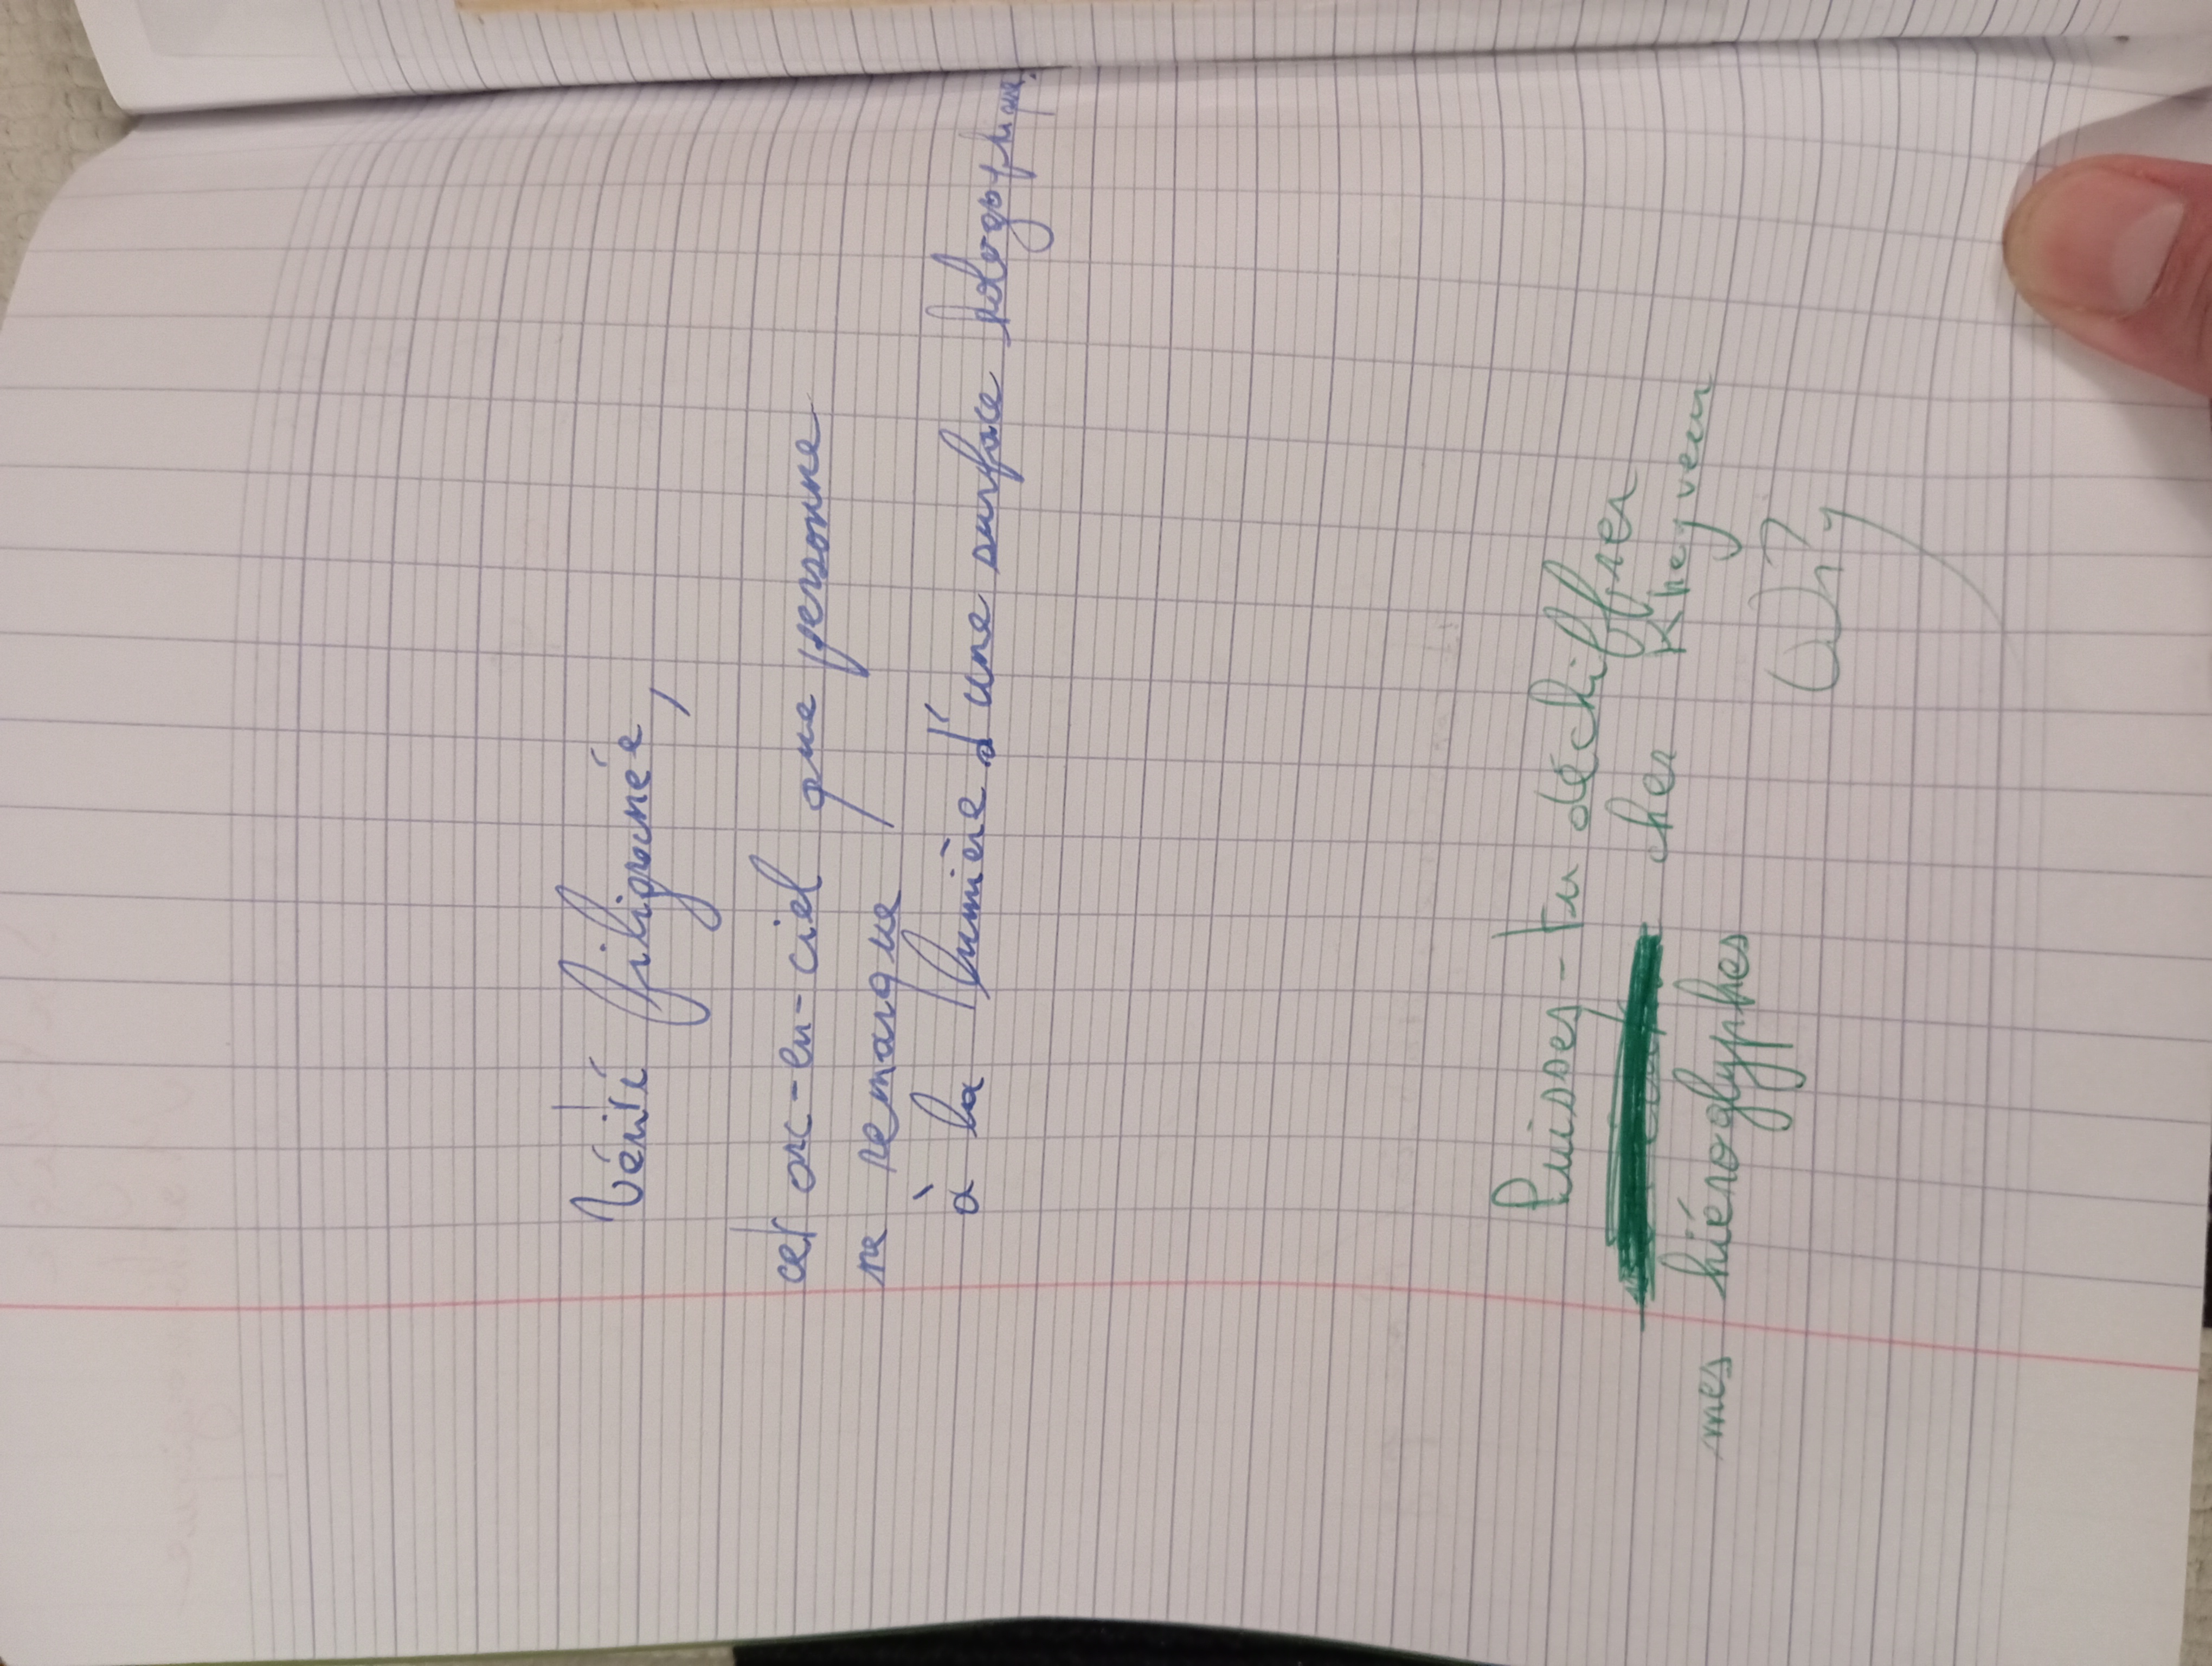 Vérité filigranée,
cet arc-en-ciel que personne
ne remarque
à la lumière d'une surface holographique.
Puisses-tu déchiffrer
cher Kheyveen
mes hiéroglyphes